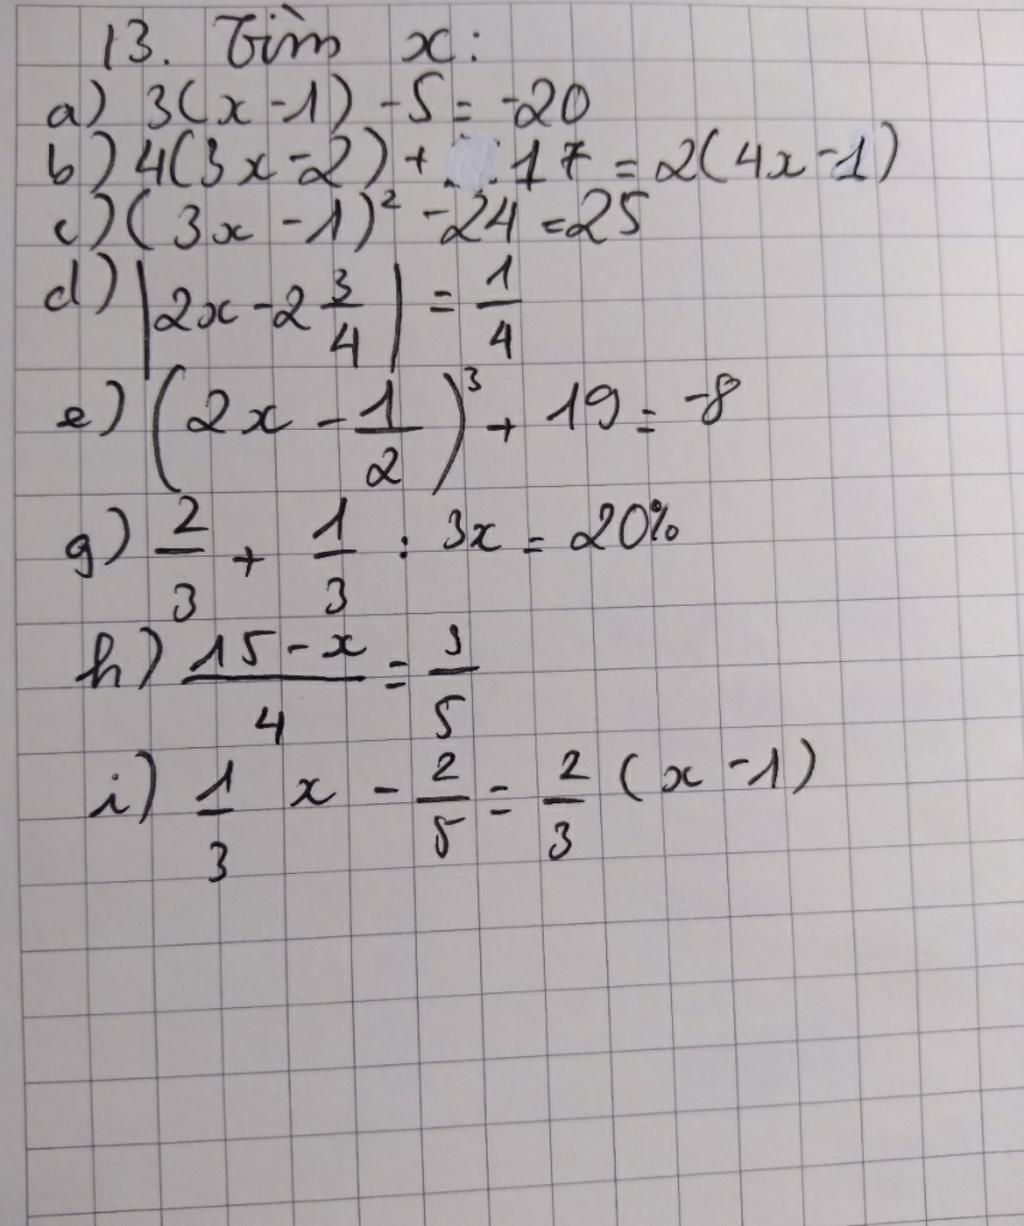 13. Tìm x:
a) 3(x-1) -5 = -20
b) 4(3x-2) + 17 = 2(4x-1)
c) (3x-1)² -24 = 25
d) |2x-2 3/4| = 1/4
e) (2x - 1/2)³ + 19 = -8
g) 2/3 + 1/3 : 3x = 20%
h) (15-x)/4 = 3/5
i) 1/3 x - 2/5 = 2/3 (x-1)